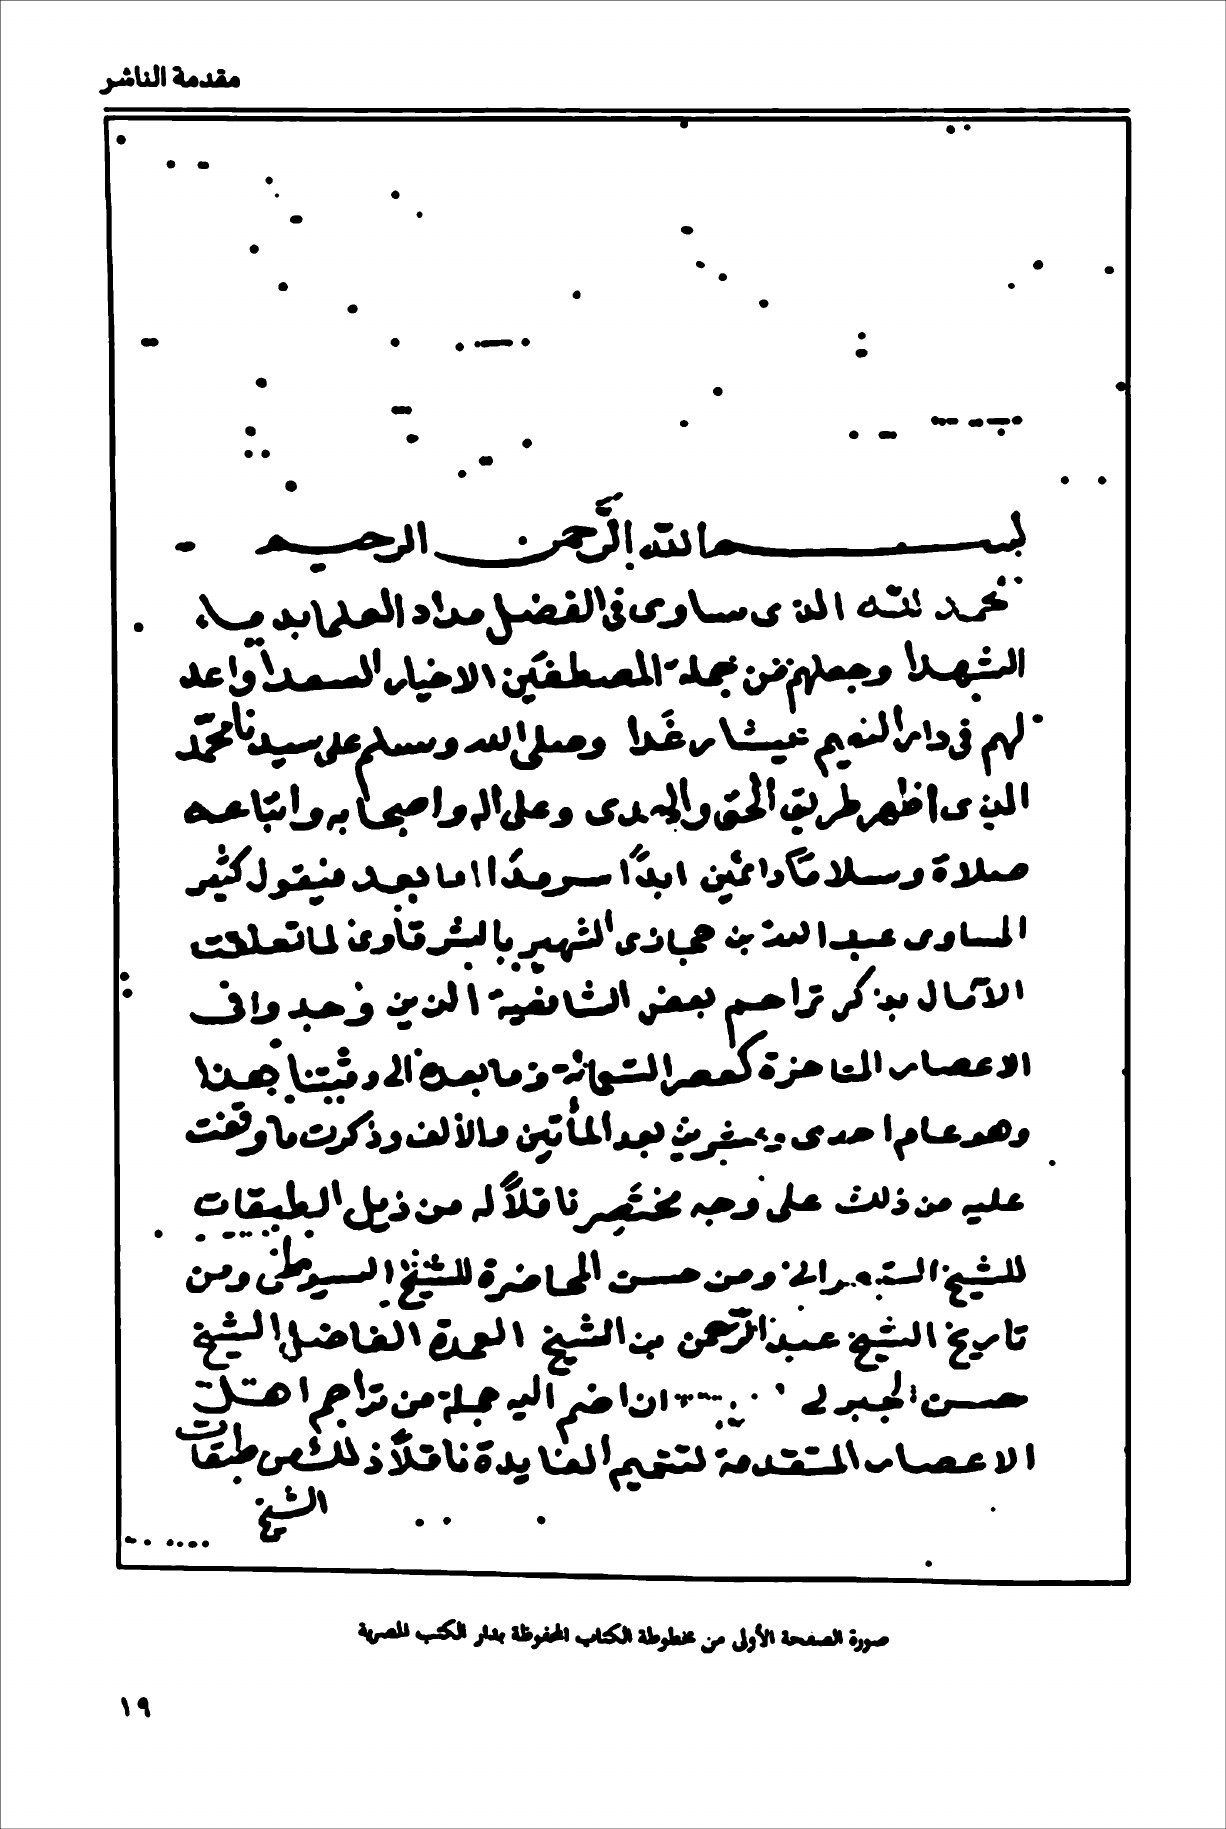 مقدمة الناشر
بسم الله الرحمن الرحيم
الحمد لله الذى ساوى فى الفضل مداد العلما بدماء
الشهدا وجعلهم من جملة المصطفين الاخيار السعدا واعد
لهم فى دار النعيم عيشا رغدا وصلى الله وسلم على سيدنا محمد
الذى اظهر طريق الحق والهدى وعلى اله واصحابه واتباعه
صلاة وسلاما دائمين ابدًا سرمدًا اما بعد فيقول كثير
المساوى عبد الله بن حجازى الشهير بالشرقاوى لما تعلقت
الآمال بذكر تراجم بعض الشافعية الذين وجدوا فى
الاعصار المتاخرة كعصر التسعمائة وما بعده الى وقتنا هذا
وهو عام احدى وعشرين بعد المأتين والألف وذكرت ما وقفت
عليه من ذلك على وجه مختصر ناقلاً له من ذيل الطبقات
للشيخ الشعرانى ومن حسن المحاضرة للشيخ السيوطى ومن
تاريخ الشيخ عبد الرحمن بن الشيخ العمدة الفاضل الشيخ
حسن الجبرتى ان اضم اليه جملة من تراجم اهل
الاعصار المتقدمة لتتميم الفايدة ناقلاً ذلك من طبقات
الشيخ
صورة الصفحة الأولى من مخطوطة الكتاب المحفوظة بدار الكتب المصرية
١٩